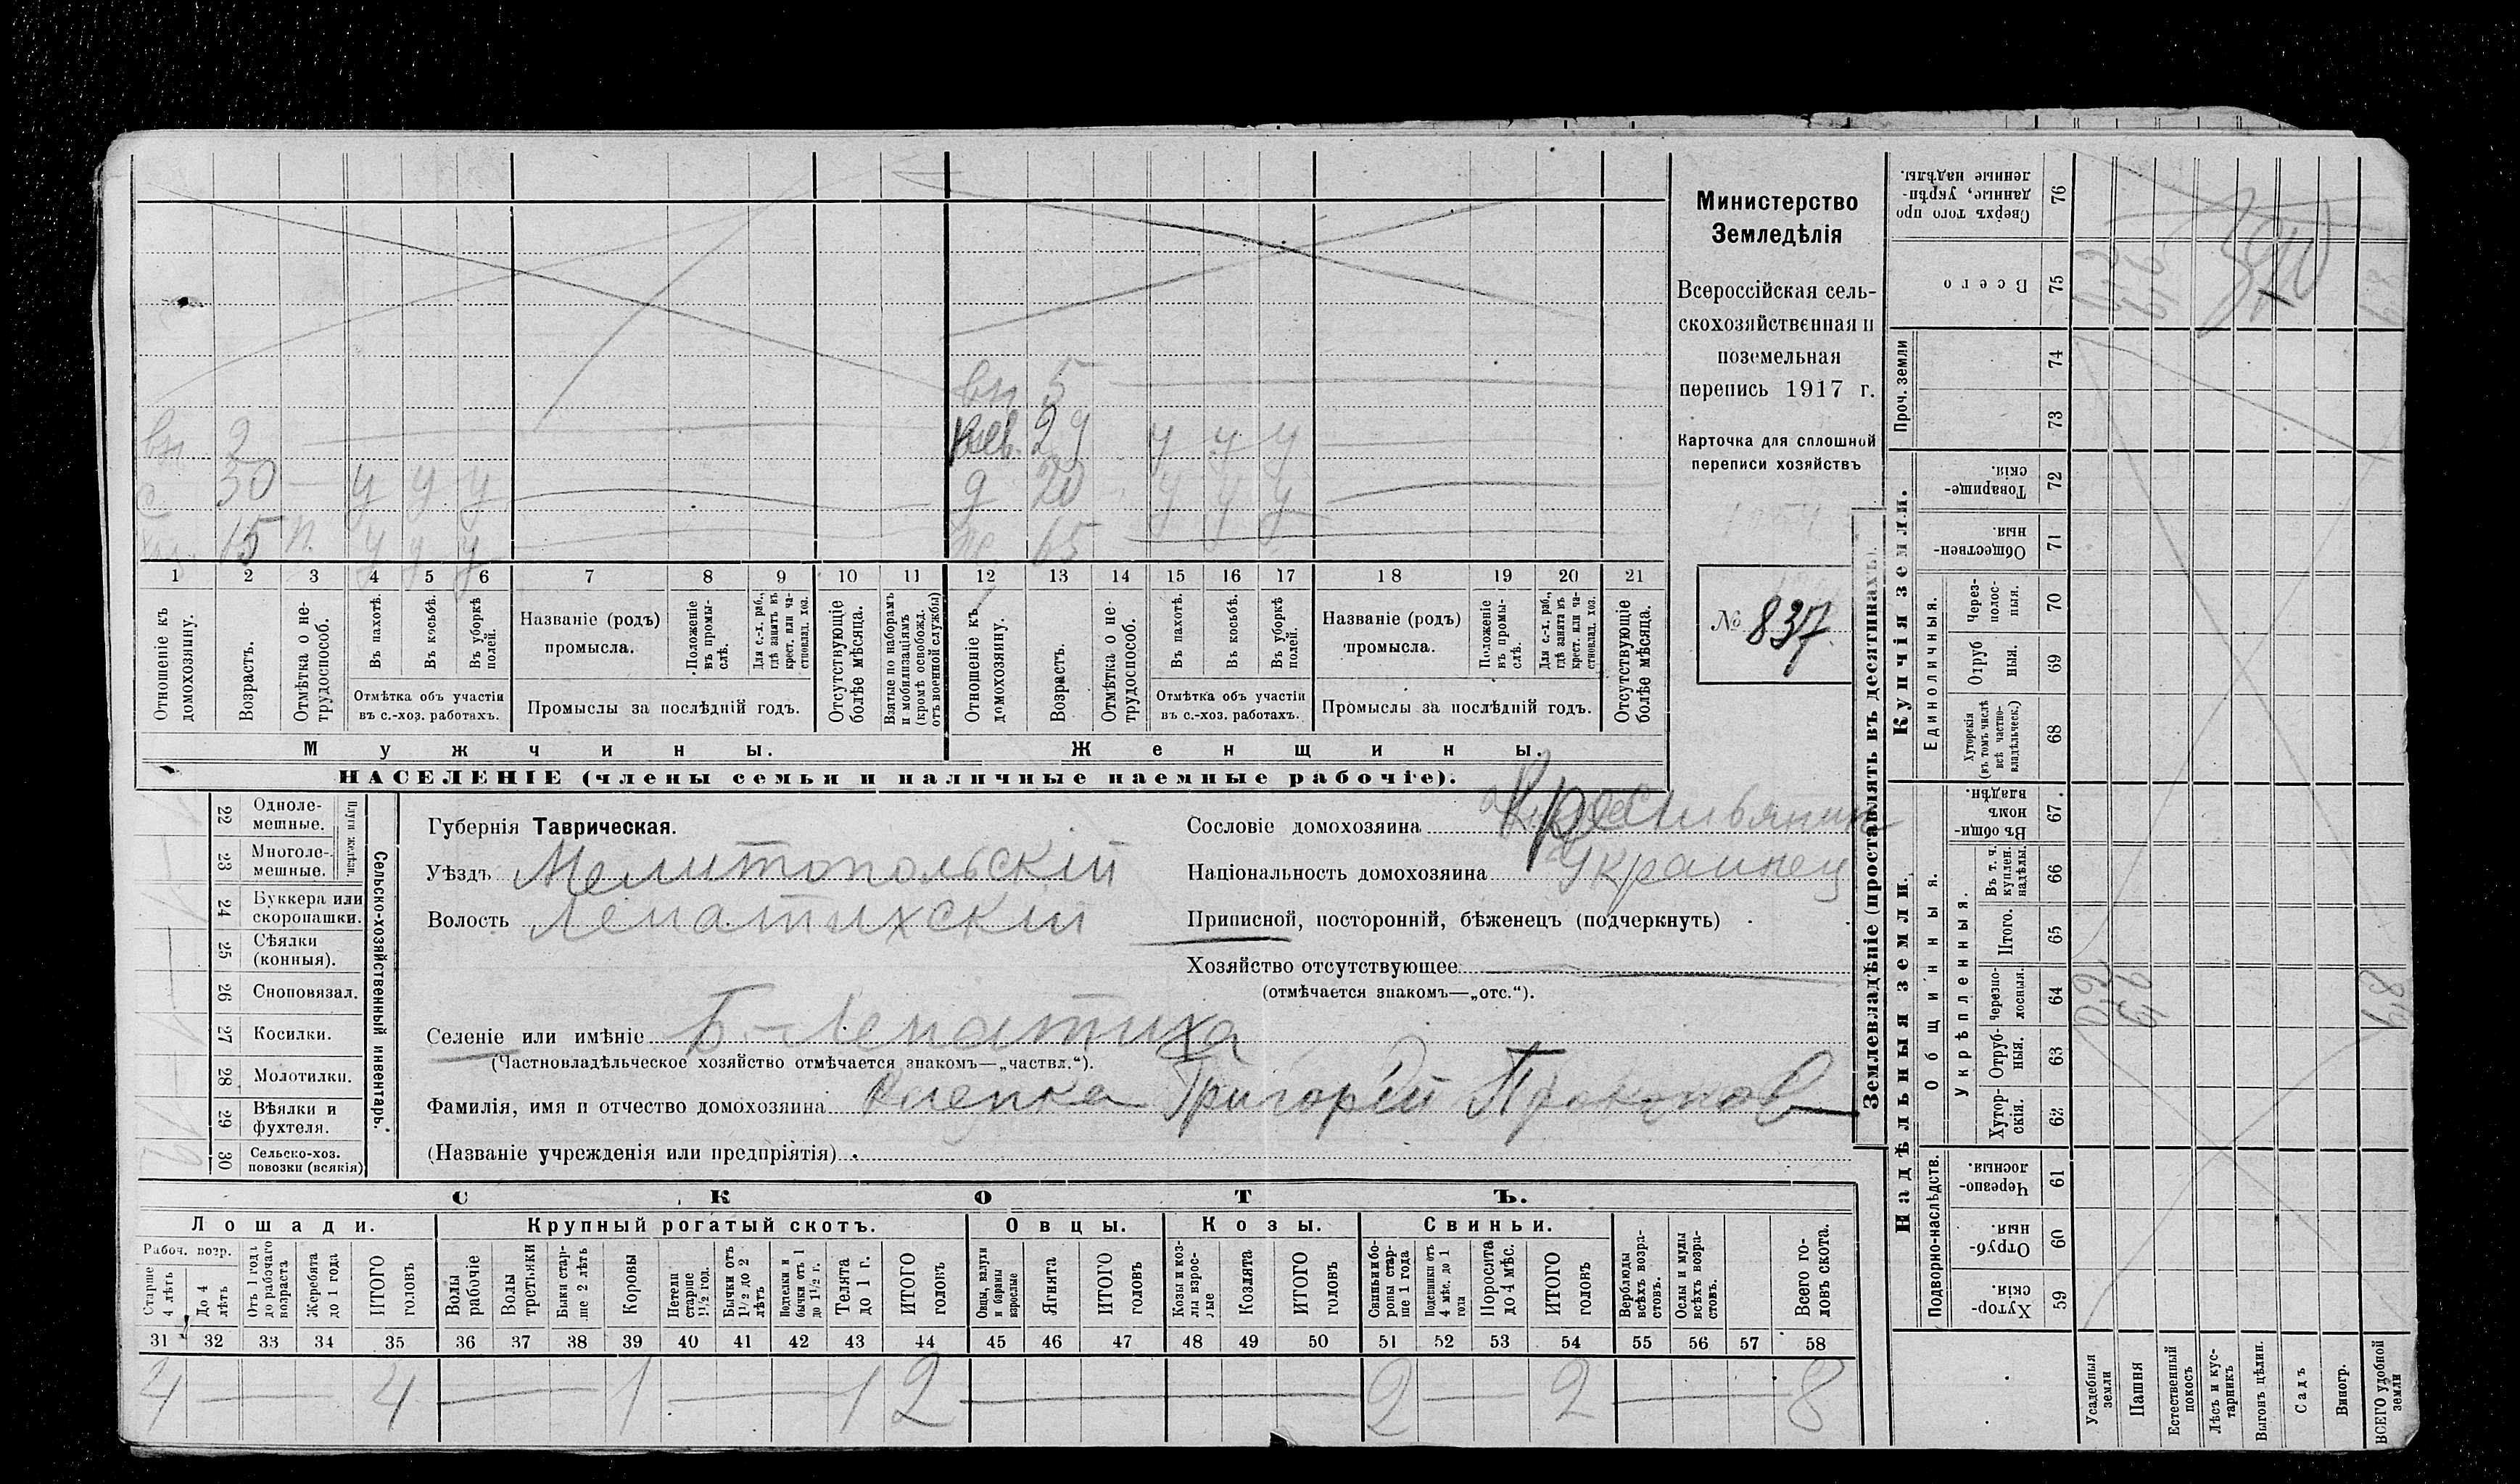 вн 5
вн. 2 нев. 29 у у у
с. 30 у у у д 20 у у у
15 п. у у у ж. 65
1 2 3 4 5 6 7 8 9 10 11 12 13 14 15 16 17 18 19 20 21
Отношеніе къ домохозяину.
Возрастъ.
Отмѣтка о не-трудоспособ.
Въ пахотѣ.
Въ косьбѣ.
Въ уборкѣ полей.
Отмѣтка объ участіи
въ с.-хоз. работахъ.
Названіе (родъ)
промысла.
Положеніе въ промы-слѣ.
Для с.-х. раб., гдѣ занятъ въ крест. или ча-стновлад. хоз.
Промыслы за послѣдній годъ.
Отсутствующіе болѣе мѣсяца.
Взятые по наборамъ и мобилизаціямъ (кромѣ освобожд. отъ военной службы)
Отношеніе къ домохозяину.
Возрастъ.
Отмѣтка о не-трудоспособ.
Въ пахотѣ.
Въ косьбѣ.
Въ уборкѣ полей.
Отмѣтка объ участіи
въ с.-хоз. работахъ.
Названіе (родъ)
промысла.
Положеніе въ промы-слѣ.
Для с.-х. раб., гдѣ занята въ крест. или ча-стновлад. хоз.
Промыслы за послѣдній годъ.
Отсутствующіе болѣе мѣсяца.
Мужчины. Женщины.
НАСЕЛЕНІЕ (члены семьи и наличные наемные рабочіе).
Министерство
Земледѣлія
Всероссійская сель-
скохозяйственная и
поземельная
перепись 1917 г.
Карточка для сплошной
переписи хозяйствъ
№ 837
22 Однолемешные.
23 Многолемешные.
Плуги желѣзн.
24 Буккера или скоропашки.
25 Сѣялки (конныя).
26 Сноповязал.
27 Косилки.
28 Молотилки.
29 Вѣялки и фухтеля.
30 Сельско-хоз. повозки (всякія)
Сельско-хозяйственный инвентарь.
Губернія Таврическая.
Уѣздъ Мелитопольскій
Волость Лепатихскій
Сословіе домохозяина Крестьянин
Національность домохозяина Украинец
Приписной, посторонній, бѣженецъ (подчеркнуть)
Хозяйство отсутствующее
(отмѣчается знакомъ—„отс.“).
Селеніе или имѣніе Б-Лепатиха
(Частновладѣльческое хозяйство отмѣчается знакомъ—„частвл.“).
Фамилія, имя и отчество домохозяина Григорій Прокопов
(Названіе учрежденія или предпріятія)
СКОТЪ.
Лошади. Крупный рогатый скотъ. Овцы. Козы. Свиньи.
Рабоч. возр.
Старше 4 лѣтъ
До 4 лѣтъ
Отъ 1 года до рабочаго возраста
Жеребята до 1 года
ИТОГО головъ
Волы рабочіе
Волы третьяки
Быки стар-ше 2 лѣтъ
Коровы
Нетели старше 1½ год.
Бычки отъ 1½ до 2 лѣтъ
Подтелки и бычки отъ 1 до 1½ г.
Телята до 1 г.
ИТОГО головъ
Овцы, валухи и бараны взрослые
Ягнята
ИТОГО головъ
Козы и коз-лы взрос-лые
Козлята
ИТОГО головъ
Свиньи и бо-ровы стар-ше 1 года
Подсвинки отъ 4 мѣс. до 1 года
Поросята до 4 мѣс.
ИТОГО головъ
Верблюды всѣхъ возра-стовъ.
Ослы и мулы всѣхъ возра-стовъ.
Всего го-ловъ скота.
31 32 33 34 35 36 37 38 39 40 41 42 43 44 45 46 47 48 49 50 51 52 53 54 55 56 57 58
4 — 4 — 1 — 1 2 — 2 — 2 — 8
Землевладѣніе (проставлять въ десятинахъ).
Купчія земли.
Надѣльныя земли.
Сверхъ того про данные, укрѣп-ленные надѣлы. 76
Всего 75
Проч. земли 74 73
Товарище-скія. 72
Обществен-ныя. 71
Единоличныя.
Через-полос-ныя. 70
Отруб ныя. 69
Хуторскія (въ томъ числѣ всѣ частно-владѣльческ.) 68
Въ общи-номъ владѣн. 67
Общинныя.
Укрѣпленныя.
Въ т. ч. куплен. надѣлы. 66
Итого. 65
Черезпо-лосныя. 64
Отруб-ныя. 63
Хутор-скія. 62
Подворно-наслѣдств.
Черезпо-лосныя. 61
Отруб-ныя. 60
Хутор-скія. 59
Усадебныя земли
Пашня
Естественный покосъ
Лѣсъ и кус-тарникъ
Выгонъ цѣлин.
Садъ
Виногр.
ВСЕГО удобной земли